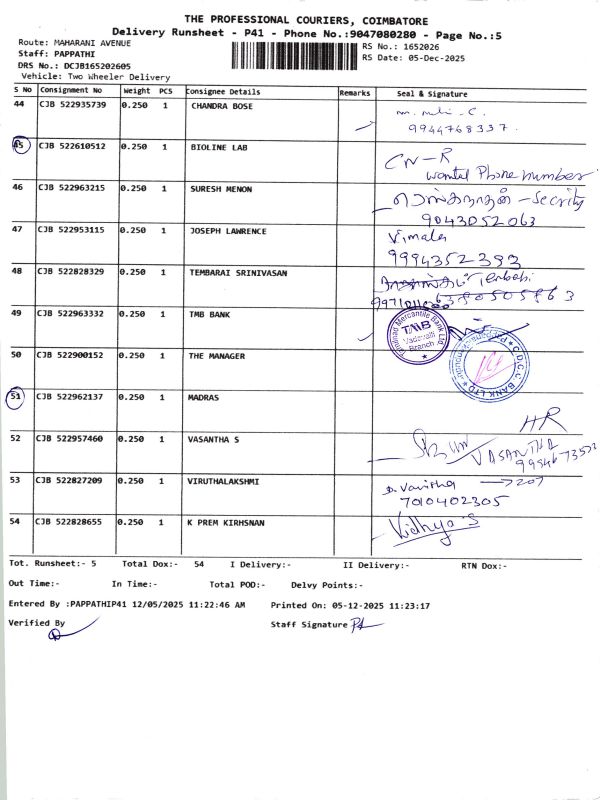 THE PROFESSIONAL COURIERS, COIMBATORE
Delivery Runsheet - P41 - Phone No.:9047080280 - Page No.:5
Route: MAHARANI AVENUE
RS No.: 1652026
Staff: PAPPATHI
RS Date: 05-Dec-2025
DRS No.: DCJB165202605
Vehicle: Two Wheeler Delivery
S No Consignment No Weight PCS Consignee Details Remarks Seal & Signature
44 CJB 522935739 0.250 1 CHANDRA BOSE
9944768337.
45 CJB 522610512 0.250 1 BIOLINE LAB
CN-R
wanted Phone number
46 CJB 522963215 0.250 1 SURESH MENON
- Secrity
9043052063
47 CJB 522953115 0.250 1 JOSEPH LAWRENCE
Vimala
9994352393
48 CJB 522828329 0.250 1 TEMBARAI SRINIVASAN
6380505863
49 CJB 522963332 0.250 1 TMB BANK
Tamilnad Mercantile Bank Ltd.
TMB
Vadavalli
Branch
50 CJB 522900152 0.250 1 THE MANAGER
C.D.C.C. BANK LTD
51 CJB 522962137 0.250 1 MADRAS
HR
52 CJB 522957460 0.250 1 VASANTHA S
VASANTHA
53 CJB 522827209 0.250 1 VIRUTHALAKSHMI
D. Vanitha → 207
7010402305
54 CJB 522828655 0.250 1 K PREM KIRHSNAN
Vidhya S
Tot. Runsheet:- 5 Total Dox:- 54 I Delivery:- II Delivery:- RTN Dox:-
Out Time:- In Time:- Total POD:- Delvy Points:-
Entered By :PAPPATHIP41 12/05/2025 11:22:46 AM Printed On: 05-12-2025 11:23:17
Verified By Staff Signature